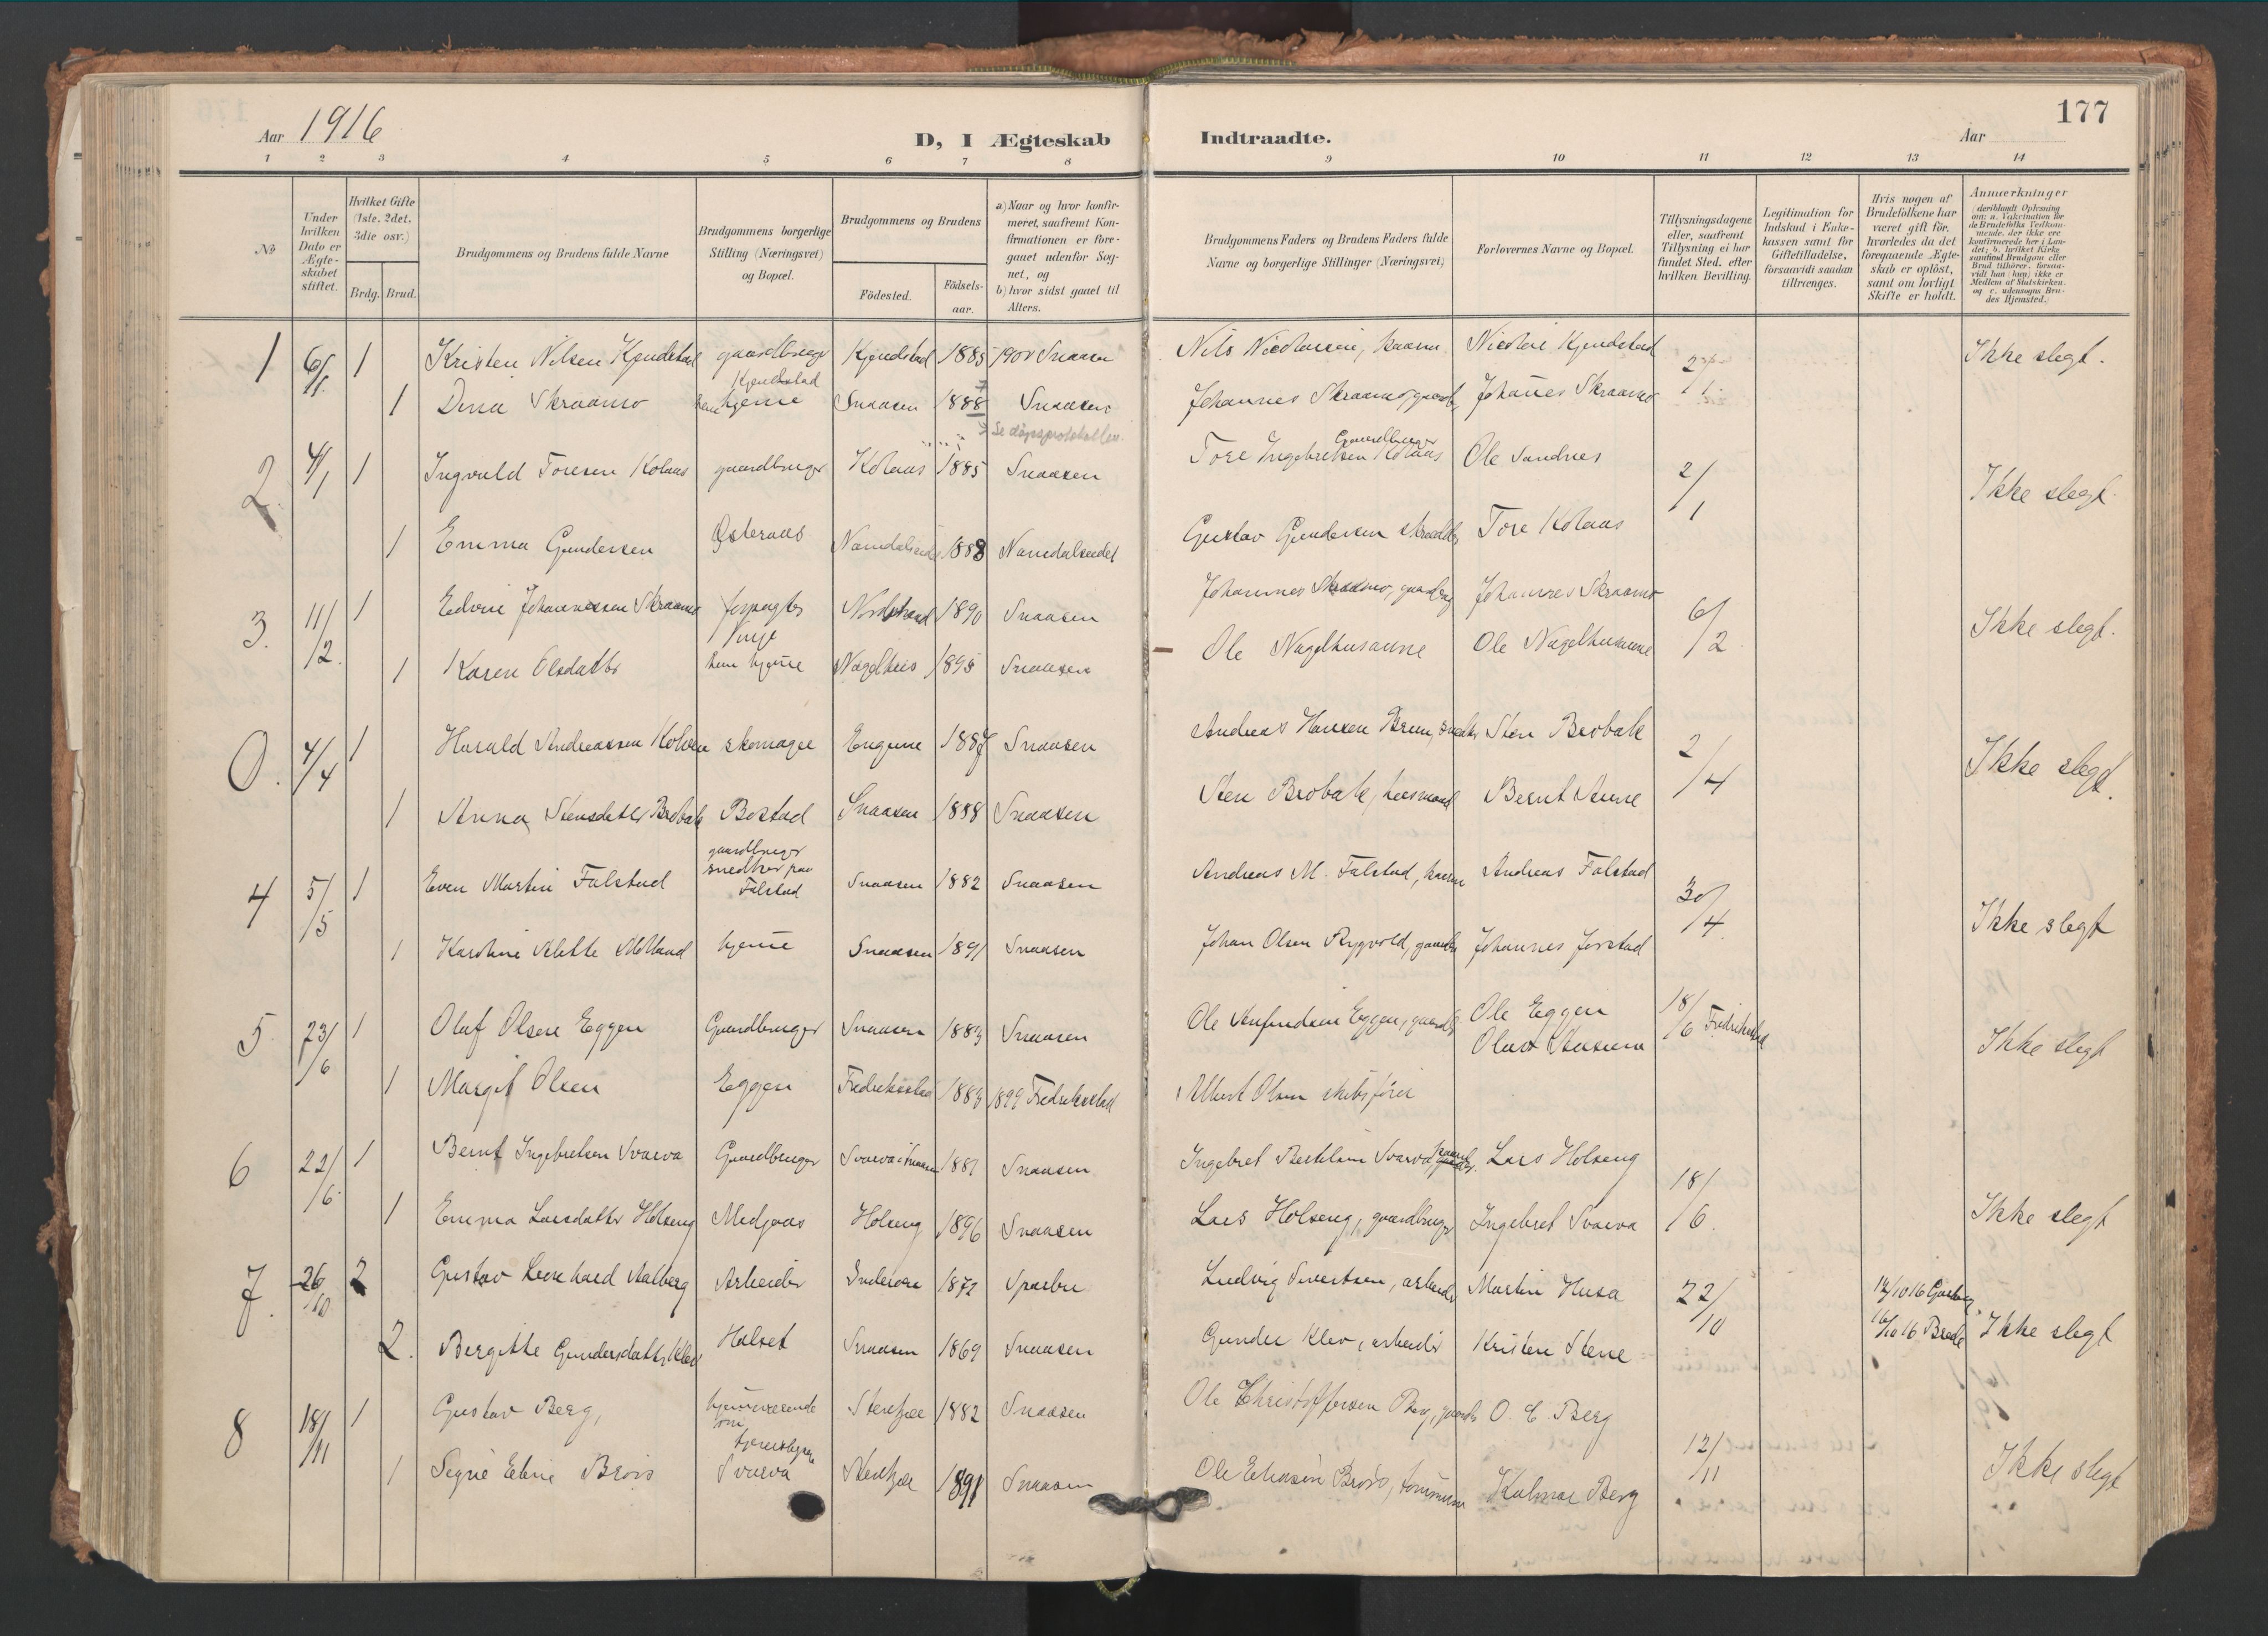 177
Aar 1916
D, I Ægteskab Indtraadte.
Aar
1 2 3 4 5 6 7 8 9 10 11 12 13 14
No
Under hvilken Dato er Ægteskabet stiftet.
Hvilket Gifte (1ste. 2det. 3die osv.)
Brdg. Brud.
Brudgommens og Brudens fulde Navne
Brudgommens borgerlige Stilling (Næringsvei) og Bopæl.
Brudgommens og Brudens
Födested.
Födselsaar.
a) Naar og hvor konfirmeret, saafremt Konfirmationen er foregaaet udenfor Sognet, og
b) hvor sidst gaaet til Alters.
Brudgommens Faders og Brudens Faders fulde Navne og borgerlige Stillinger (Næringsvei)
Forlovernes Navne og Bopæl.
Tillysningsdagene eller, saafremt Tillysning ei har fundet Sted, efter hvilken Bevilling.
Legitimation for Indskud i Enkekassen samt for Giftetilladelse, forsaavidt saadan tiltrænges.
Hvis nogen af Brudefolkene har været gift för, hvorledes da det foregaaende Ægteskab er oplöst, samt om lovligt Skifte er holdt.
Anmærkninger (deriblandt Oplysning om: a. Vakcination for de Brudefolks Vedkommende, der ikke ere konfirmerede her i Landet; b. hvilket Kirkesamfund Brudgom eller Brud tilhörer, forsaavidt han (hun) ikke er Medlem af Statskirken, og c. udensogns Brudes Hjemsted.)
1 6/1 1 Kristen Nilsen Kjendstad gaardbruger Kjendstad Kjendstad 1885 Snaasen Nils Nicolaisen, kaarm Nicolai Kjendstad 2/1 Ikke slegt.
1 Dina Skraamo hjeme Snaasen 1888 Snaasen Johannes Skraamo, gaardb Johanes Skraamo
Se dåpsprotokollen.
2 4/1 1 Ingvald Toresen Kolaas gaardbruger Kolaas 1885 Snaasen Tore Ingebretsen Kolaas Gaardbruger Ole Sandnes 2/1 Ikke slegt
1 Emma Gundersen Østeraas Namdalseidet 1888 Namdalseidet Gustav Gundersen skrædder Tore Kolaas
3. 11/2. 1 Edvin Johannessen Skraamo forpagter Vinje 1890 Snaasen Johannes Skraamo, gaardbrug Johannes Skraamo 6/2 Ikke slegt.
1 Karen Olsdatter hjeme Nagelhus 1895 Snaasen Ole Nagelhusaune Ole Nagelhusaune
0. 4/4 1 Harald Andreassen skomager 1887 Snaasen Andreas Hansen Sten Brobak 2/4 Ikke slegt.
1 Anna Stensdatter Brobak Bostad Snaasen 1888 Snaasen Sten Brobak, Bernt
4 5/5 1 Even Martin Falstad gaardbruger snedker paa Falstad Snaasen 1882 Snaasen Andreas M. Falstad, kaarm Andreas Falstad 30/4 Ikke slegt
1 Karoline Alette hjeme Snaasen 1891 Snaasen Johan Olsen Rygvold, gaardbr Johannes Jørstad
5 23/6 1 Olaf Olsen Eggen Gaardbruger Snaasen 1883 Snaasen Ole Eggen, gaardb Ole Eggen 18/6 Fredrikstad Ikke slegt
Olav
1 Margit Olsen Eggen Fredrikstad 1883 1899 Fredrikstad Albert Olsen skibsfører
6 22/6. 1 Bernt Ingebretsen Svarva Gaardbruger Svarva i Snaasen 1881 Snaasen Ingebret Bertelsen Svarva, Lars Holseng 18/6. Ikke slegt
1 Emma Larsdatter Holseng Medjaas Holseng 1896 Snaasen Lars Holseng, gaardbruger Ingebret Svarva
7. 26/10 2 Gustav Leonhard Aalberg Arbeider Inderøen 1872 Sparbu Ludvig Sivertsen, arbeider Martin Husa 22/10 14/10 16 Gjesberg. Ikke slegt
2. Bergitte Gundersdatter Klev Halset Snaasen 1869 Snaasen Gunder Klev, arbeider Kristen Stene 16/10 16 Brede
8 18/11 1 Gustav Berg, hjemmeværende Stenkjær 1882 Snaasen Ole Christoffersen Berg, gaardb O. C. Berg 12/11 Ikke slegt
1 Signe Eline Brøis Svarva Stenkjær 1891 Snaasen Ole Eliasen Brøis, tømmerm Hjalmar Berg